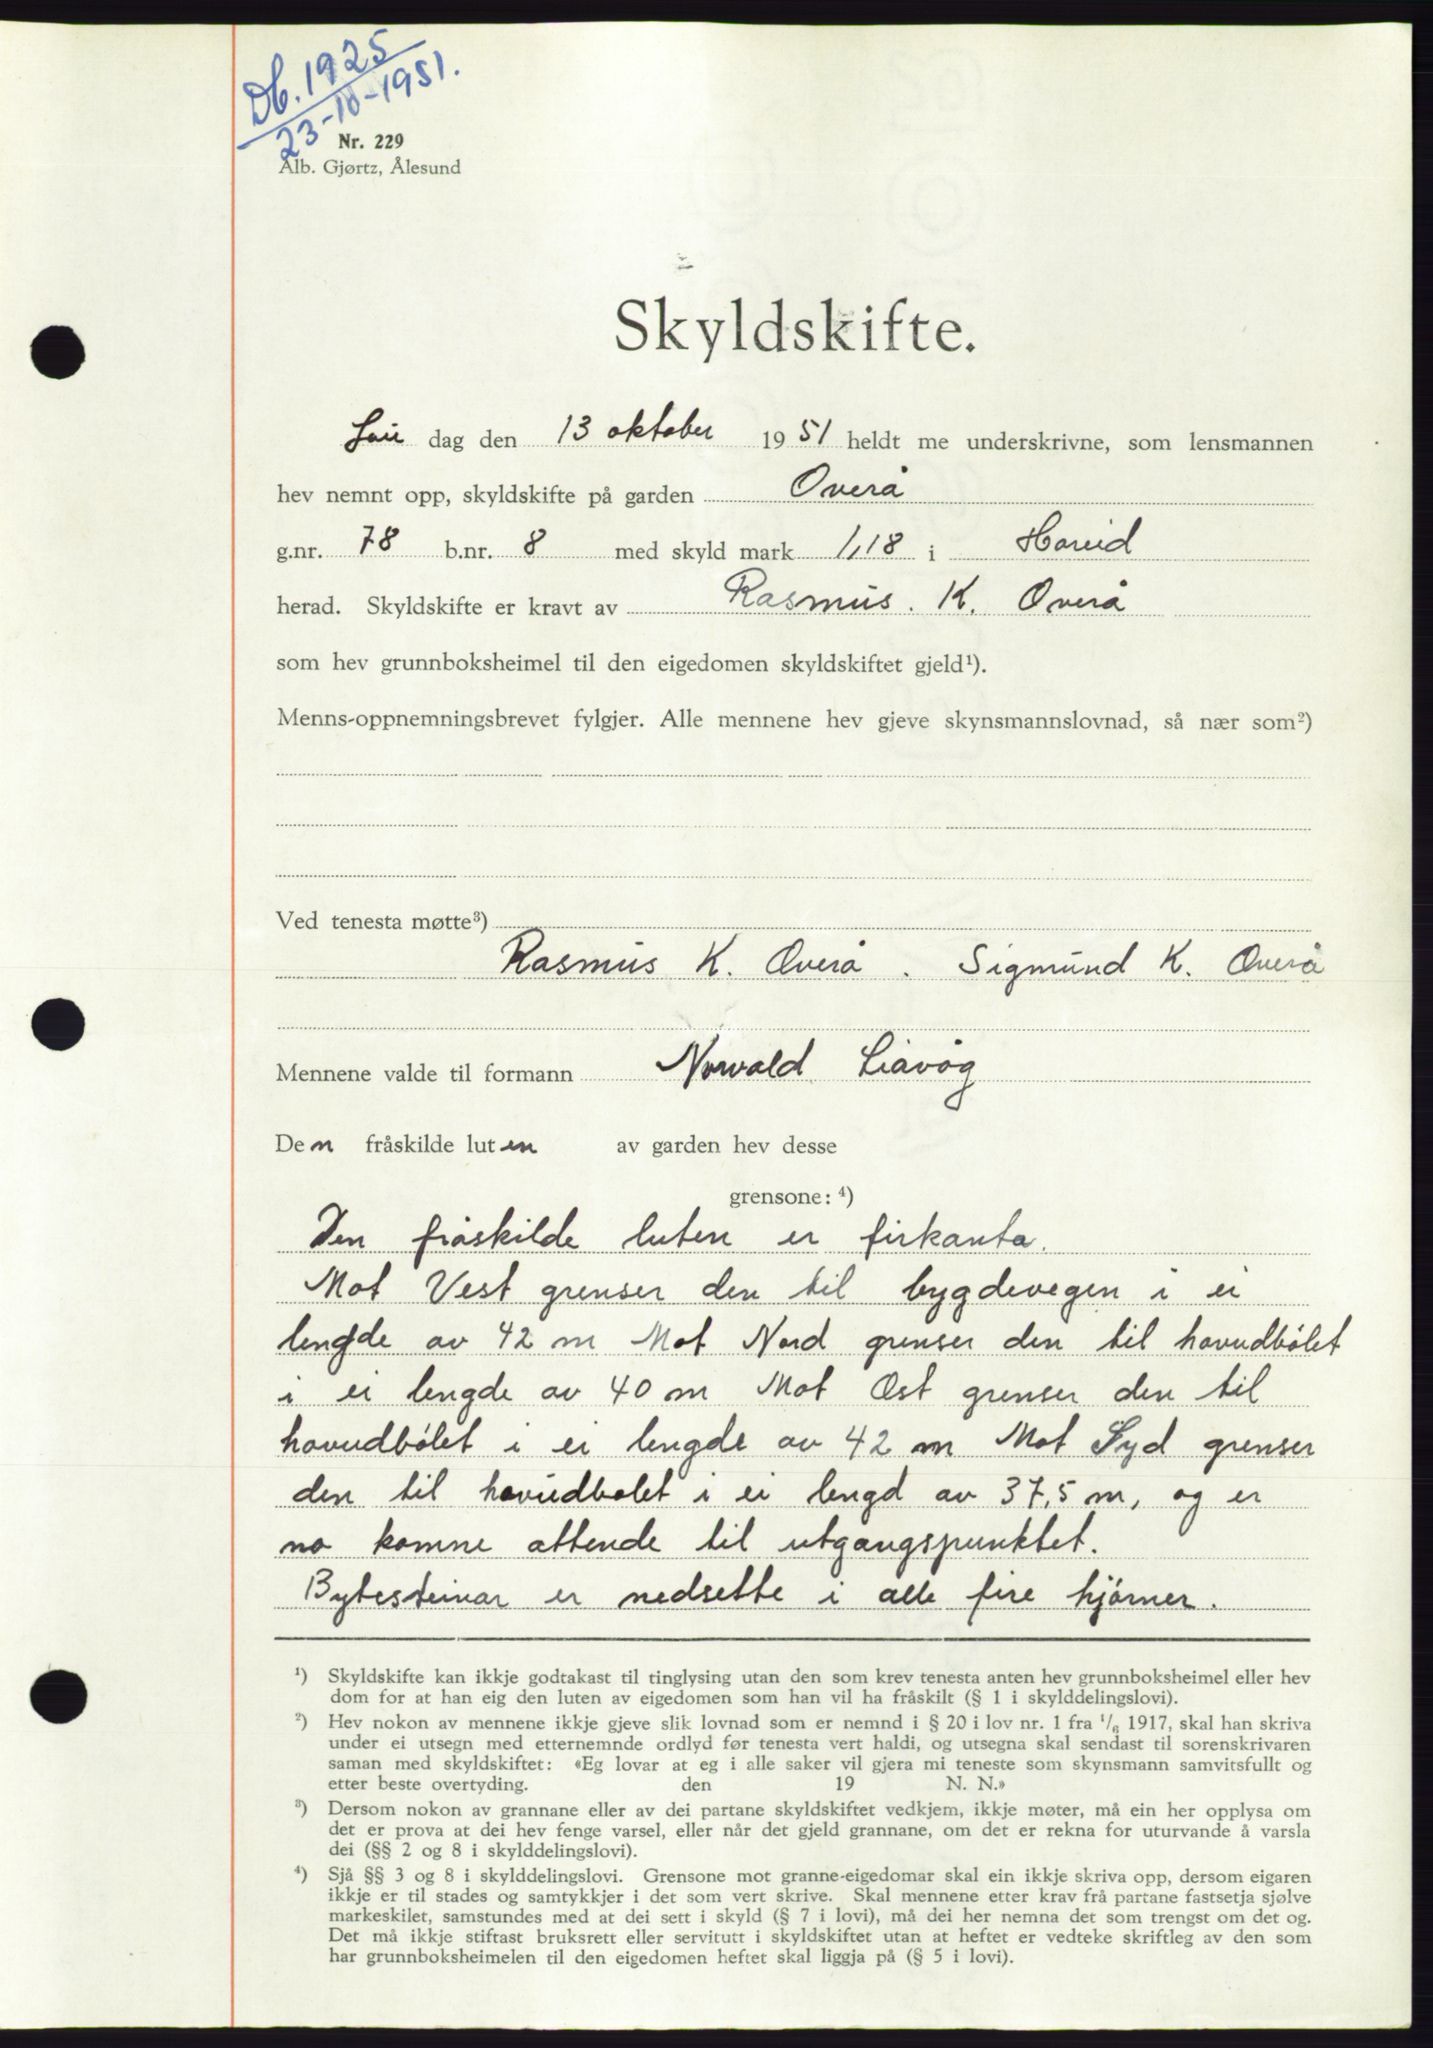 Db. 1925
23-10-1951.
Nr. 229
Alb. Gjørtz, Ålesund
Skyldskifte.
Lau dag den 13 oktober 1951 heldt me underskrivne, som lensmannen
hev nemnt opp, skyldskifte på garden Overå
g.nr. 78 b.nr. 8 med skyld mark 1,18 i Hareid
herad. Skyldskifte er kravt av Rasmus. K. Overå
som hev grunnboksheimel til den eigedomen skyldskiftet gjeld¹).
Menns-oppnemningsbrevet fylgjer. Alle mennene hev gjeve skynsmannslovnad, så nær som²)
Ved tenesta møtte³)
Rasmus K. Overå. Sigmund K. Overå
Mennene valde til formann Norvald Liavåg
Den fråskilde luten av garden hev desse
grensone: ⁴)
Den fråskilde luten er firkanta.
Mot Vest grenser den til bygdevegen i ei
lengde av 42 m Mot Nord grenser den til hovudbølet
i ei lengde av 40 m Mot Øst grenser den til
hovudbølet i ei lengde av 42 m Mot Syd grenser
den til hovudbølet i ei lengd av 37,5 m, og er
no komne attende til utgangspunktet.
Bytesteinar er nedsette i alle fire hjørner.
¹) Skyldskifte kan ikkje godtakast til tinglysing utan den som krev tenesta anten hev grunnboksheimel eller hev
dom for at han eig den luten av eigedomen som han vil ha fråskilt (§ 1 i skylddelingslovi).
²) Hev nokon av mennene ikkje gjeve slik lovnad som er nemnd i § 20 i lov nr. 1 fra ¹/₆ 1917, skal han skriva
under ei utsegn med etternemnde ordlyd før tenesta vert haldi, og utsegna skal sendast til sorenskrivaren
saman med skyldskiftet: «Eg lovar at eg i alle saker vil gjera mi teneste som skynsmann samvitsfullt og
etter beste overtyding. den 19 N. N.»
³) Dersom nokon av grannane eller av dei partane skyldskiftet vedkjem, ikkje møter, må ein her opplysa om
det er prova at dei hev fenge varsel, eller når det gjeld grannane, om det er rekna for uturvande å varsla
dei (§§ 2 og 8 i skylddelingslovi).
⁴) Sjå §§ 3 og 8 i skylddelingslovi. Grensone mot granne-eigedomar skal ein ikkje skriva opp, dersom eigaren
ikkje er til stades og samtykkjer i det som vert skrive. Skal mennene etter krav frå partane fastsetja sjølve
markeskilet, samstundes med at dei sett i skyld (§ 7 i lovi), må dei her nemna det som trengst om det og.
Det må ikkje stiftast bruksrett eller servitutt i skyldskiftet utan at heftet er vedteke skriftleg av den som
har grunnboksheimelen til den eigedomen heftet skal liggja på (§ 5 i lovi).